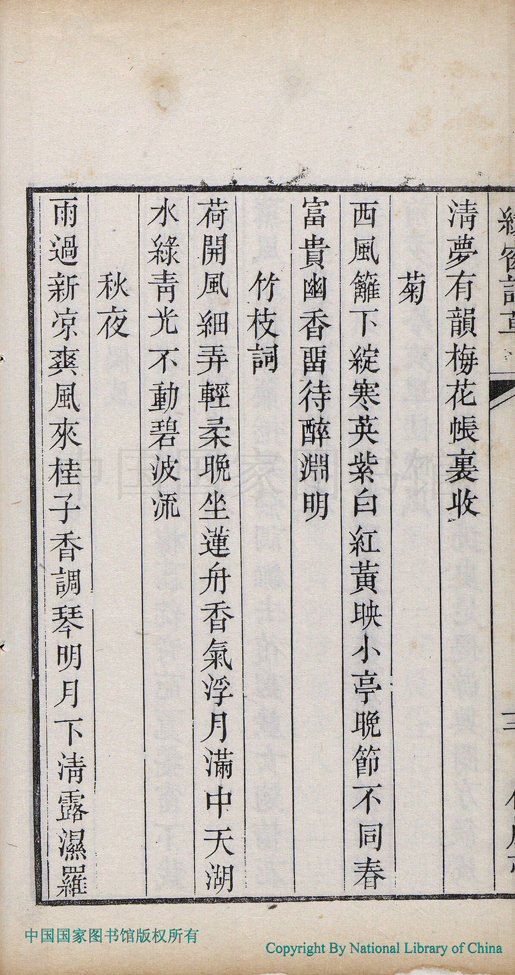 清夢有韻梅花帳裏收
菊
西風籬下綻寒英紫白紅黃映小亭晚節不同春
富貴幽香畱待醉淵明
竹枝詞
荷開風細弄輕柔晚坐蓮舟香氣浮月滿中天湖
水綠青光不動碧波流
秋夜
雨過新凉爽風來桂子香調琴明月下清露濕羅
中国国家图书馆版权所有
Copyright By National Library of China